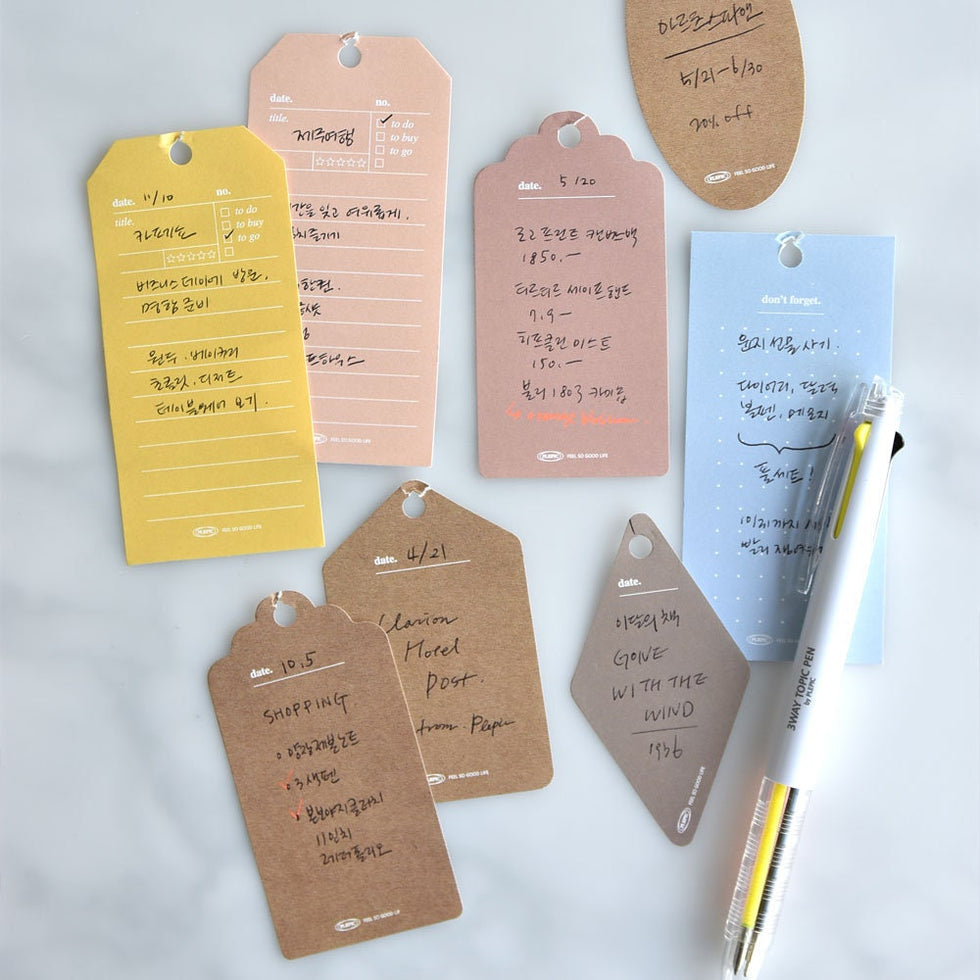 5/21-6/30
20% off
PLEPIC FEEL SO GOOD LIFE
date.
no.
title.
제주여행
to do
to buy
to go
잊고 여유롭게.
즐기기
FEEL SO GOOD LIFE
date. 11/10
no.
title.
to do
to buy
to go
비즈니스데이에 방문.
명함 준비
원두. 베이커리
초콜릿. 디저트
테이블웨어 보기.
PLEPIC FEEL SO GOOD LIFE
date. 5/20
로고 프린트 캔버스백
1850.-
티르티르 세이프핸드
7.9-
미스트
150.-
1803
PLEPIC FEEL SO GOOD LIFE
don't forget.
윤지 선물 사기.
다이어리, 달력
볼펜, 메모지
풀세트!
PLEPIC
date. 4/21
Clarion
Hotel
Post.
from Plepic
FEEL SO GOOD LIFE
date. 10.5
SHOPPING
양장제본노트
3색펜
본보야지클러치
11인치
레더폴리오
PLEPIC FEEL SO GOOD LIF
date.
이달의 책
GONE
WITH THE
WIND
1936
PLEPIC FEEL SO GOOD LIFE
3WAY TOPIC PEN
by PLEPIC